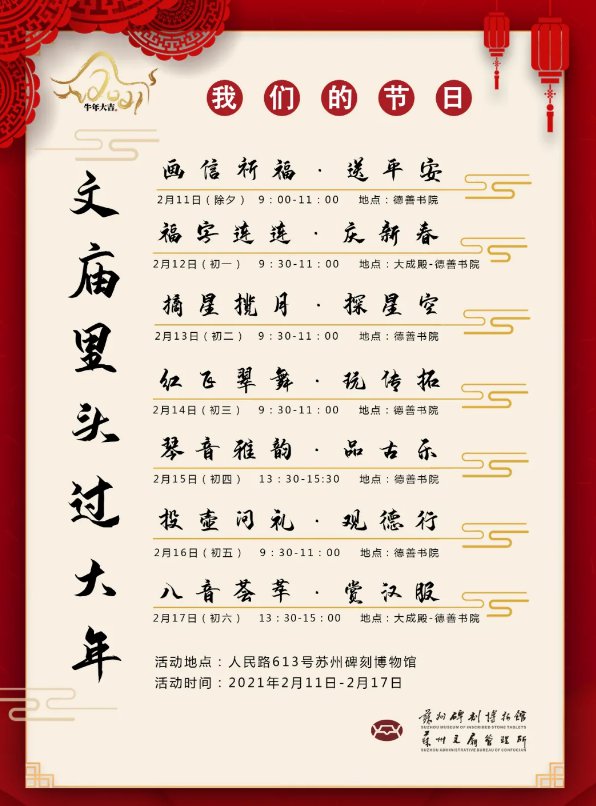 2021
牛年大吉
我们的节日
文庙里头过大年
画信祈福·送平安
2月11日（除夕） 9：00-11：00 地点：德善书院
福字连连·庆新春
2月12日（初一） 9：30-11：00 地点：大成殿-德善书院
摘星揽月·探星空
2月13日（初二） 9：30-11：00 地点：德善书院
红飞翠舞·玩传拓
2月14日（初三） 9：30-11：00 地点：德善书院
琴音雅韵·品古乐
2月15日（初四） 13：30-15:30 地点：德善书院
投壶问礼·观德行
2月16日（初五） 9：30-11：00 地点：德善书院
八音荟萃·赏汉服
2月17日（初六） 13:30-15:00 地点：大成殿-德善书院
活动地点：人民路613号苏州碑刻博物馆
活动时间：2021年2月11日-2月17日
蘇州碑刻博物館
SUZHOU MUSEUM OF INSCRIBED STONE TABLETS
蘇州文廟管理所
SUZHOU ADMINISTRATIVE BUREAU OF CONFUCIAN